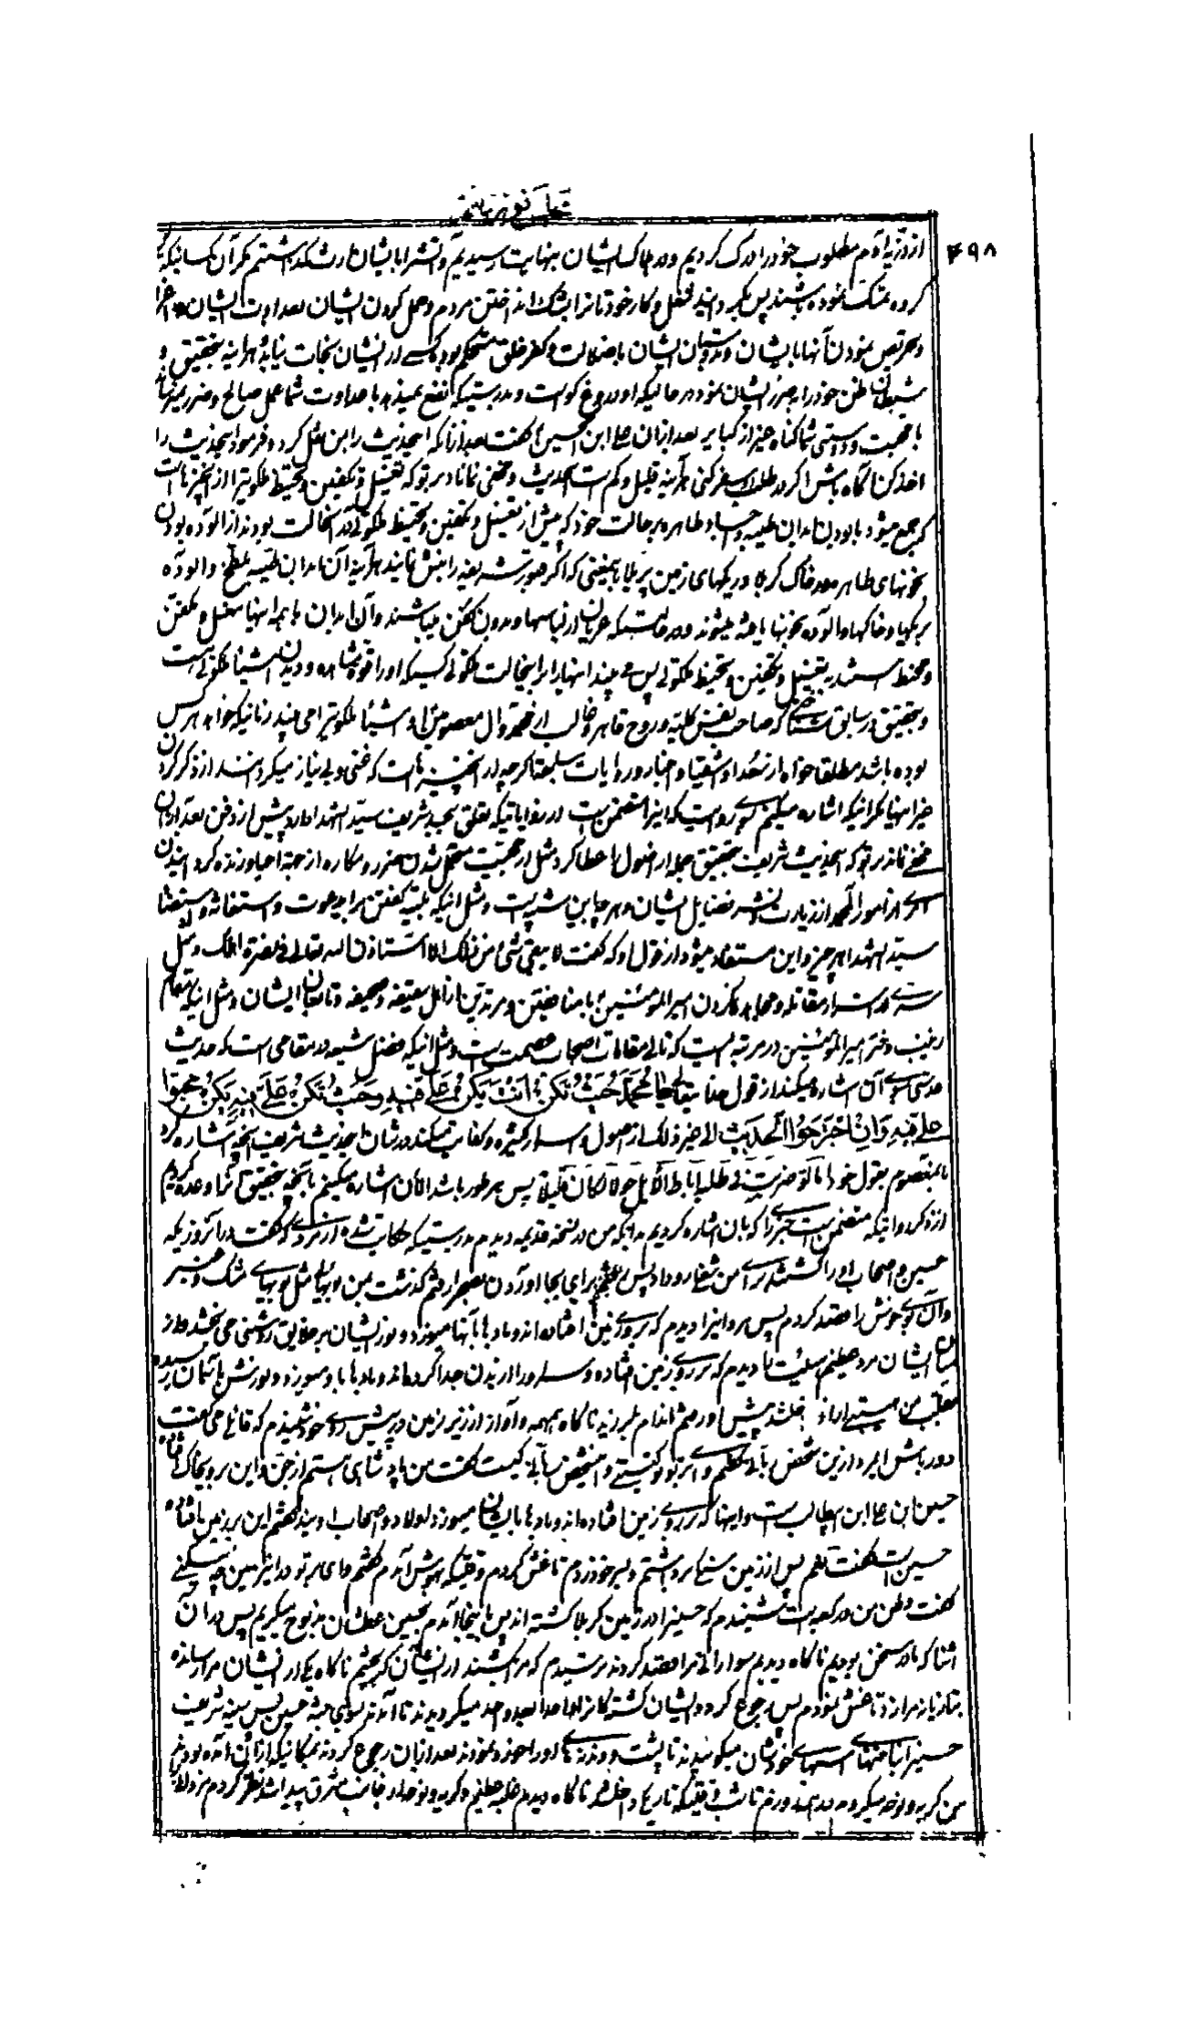 مجلس نوزدهم
۴۹۸
از ذریهٔ آدم مطلوب خود را درک کردیم و در هلاک ایشان بنهایت رسیدیم و آتش را بایشان ارث گذاشتیم مگر آن کسانیکه
کروه تمسک نموده باشند پس بگردانید شغل و کار خود تانرا بشک انداختن مردم و حمل کردن ایشان بعداوت ایشان
و حریص نمودن آنها بایشان و دوستان ایشان تا ضلالت و کفر خلق مستحکم بوده کسے از ایشان نجات نیابد و هرآینه بتحقیق
شیطان ظن خود را بر ایشان نمود در حالیکه او دروغ گو است و بدرستیکه نفع نمیدهد با عداوت شما عمل صالح و ضرر نمیرساند
با محبت و دوستی شما گناه غیر از کبایر بعد از آن علی ابن الحسین گفت بعد از آنکه این حدیث را نقل کرد و فرمود این حدیث را
اخذ کن آگاه باش اگر در طلب سفر کنی هرآینه قلیل و کم است این حدیث و مخفی نماناد بر تو که تغسیل و تکفین و تحنیط ملکوتی از آنچیزها است
که جمع میشود با بودن ابدان طیبه و اجساد طاهره بر حالت خود که پیش از تغسیل و تکفین و تحنیط ملکوتی در آنحالت بودند از آلوده بودن
بخونهای طاهر و در خاک کربلا و ریگهای زمین پر بلا باینمعنی که اگر صورت نبش نمایند هرآینه آن ابدان طیبه ملطخ و آلوده
بریگها و خاکها و آلوده بخونها یافته میشوند و در حالتیکه عریان از لباسها و بدون کفن میباشند و آن ابدان با همه اینها مغسل و مکفن
و محنط هستند بتغسیل و تکفین و تحنیط ملکوتی پس می بیند اینها را بر اینحالت ملکوتی کسیکه او را قوه مشاهده و دیدن اشیاء ملکوتی است
و بتحقیق در سابق شناختی که صاحب نفس کلیه و روح قاهر و غالب از محمد و آل معصومین او اشیاء ملکوتی را می بیند زمانیکه خواهد هر کس
بوده باشد مطلقا خواه از سعدا و اشقیا و اخبار و روایات سابقه اگرچه از آنچیزها است که غنی و بی نیاز میکردانند از ذکر کردن
غیر اینها مگر اینکه اشاره میکنم بسوی روایتیکه اینرا متضمن است از روایاتیکه تعلق بجسد شریف سید الشهدا دارد پیش از دفن بعد از آن
مخفی نماند بر تو که این حدیث شریف بتحقیق جمله از اصول را عطا کرد مثل از محبت متحمل شدن ضرر و مکاره از جهة احیا و زنده کردانیدن
امر از امور آل محمد از زیارت و نشر فضایل ایشان و هر چه باین شبیه است و مثل اینکه لبیک گفتن مر اجابت دعوت و استغاثه و استنصار
سید الشهدا هر چیز و این مستفاد میشود از قول او که گفت لا یبقی شئ من ذلک الا استاذن الله تعالی فی نصرة اهلک و مثل
سر مقاتله و مجاهده نکردن امیر المؤمنین با منافقین و مرتدین از اهل سقیفه و صحیفه و تابعان ایشان و مثل اینکه مقام
زینب دختر امیر المؤمنین در مرتبه ایست که تالی مقامات اصحاب عصمت است و مثل اینکه فضل شیعه در مقامی است که حدیث
قدسی بسوی آن اشاره میکند از قول خدا تعالی یا محمد حیث تکن انت یکن علی فیه و حیث تکن علی فیه یکن محبوا
علی فیه وان اجترحوا الحدیث الی غیر ذلک از اصول و اسرار کثیره و کفایت میکند در شان این حدیث شریف آنچه اشاره کرد
بمعصوم بقول خود اما لو ضربت فی طلبه اباط الابل حولا لکان قلیلا پس هر طور باشد الآن اشاره میکنیم بآنچه بتحقیق ترا وعده کردیم
از ذکر روایتیکه متضمن است چیزی را که بآن اشاره کردیم بدانکه من در نسخه قدیمه دیدم بدرستیکه حکایت شده از مردے که گفت در آنروزیکه
حسین و اصحاب او را کشتند برای من شغل رو داد پس برای بجا آوردن بصحرا رفتم گذشت بمن بویهای مثل بویهای مشک و عنبر
و آن بوی خوش را قصد کردم پس مردانیرا دیدم که بر روی زمین افتاده اند و بادها بآنها میوزد و نور ایشان بر خلایق روشنی می بخشد و در
میان ایشان مرد عظیم الهیئت را دیدم که بر روی زمین افتاده و سر او را از بدن جدا کرده اند و بادها باو میوزد و نورش بآسمان رسیده
بقلب من هیبتی از او داخل شد پیش او رفتم اندام بلرزید ناگاه همهمه و آواز از زیر زمین در پیش روی خود شنیدم که قائلی می گفت
دور باش ای مرد از این شخص ربانی گفتم وای بر تو تو کیستی و این شخص ربانی کیست گفت من پادشاهی هستم از جن و این بر روی خاک افتاده
حسین ابن علی ابن ابیطالب است و اینها که بر روی زمین افتاده اند و بادها بایشان میوزد اولاد و اصحاب اویند گفتم این بر زمین افتاده
حسین است گفت نعم پس از زمین سنگے برداشتم و بر سر خود زدم تا غش کردم و وقتیکه بهوش آمدم گفتم وای بر تو در این زمین چه میکنے
گفت وطن من در کعبه است شنیدم که حسین را در زمین کربلا کشته اند پس باینجا آمدم بحسین عطشان مذبوح میگریم پس در آن
اثنا که با او سخن بودیم ناگاه دیدیم سوارانی مرا قصد کردند ترسیدم که مرا بکشند از ایشان گریختم ناگاه یکی از ایشان مرا رسانده
بتازیانه مرا زد تا غش نمودم پس رجوع کرد و ایشان کشته گانرا واحدا بعد واحد میگردیدند تا آمدند بسوی جثه حسین پس سینه شریف
حسین را با سمهای اسبهای خودشان میکوبیدند تا پشت و دنده های او را خورد نمودند بعد از آن رجوع کردند بمکانیکه از آن آمده بودند
من گریه و نوحه میکردم در آن روز تا شب وقتیکه تاریکی داخل شد ناگاه دیدم غلبه عظیم و گریه و نوحه از جانب مشرق پیدا شد نظر کردم مرد